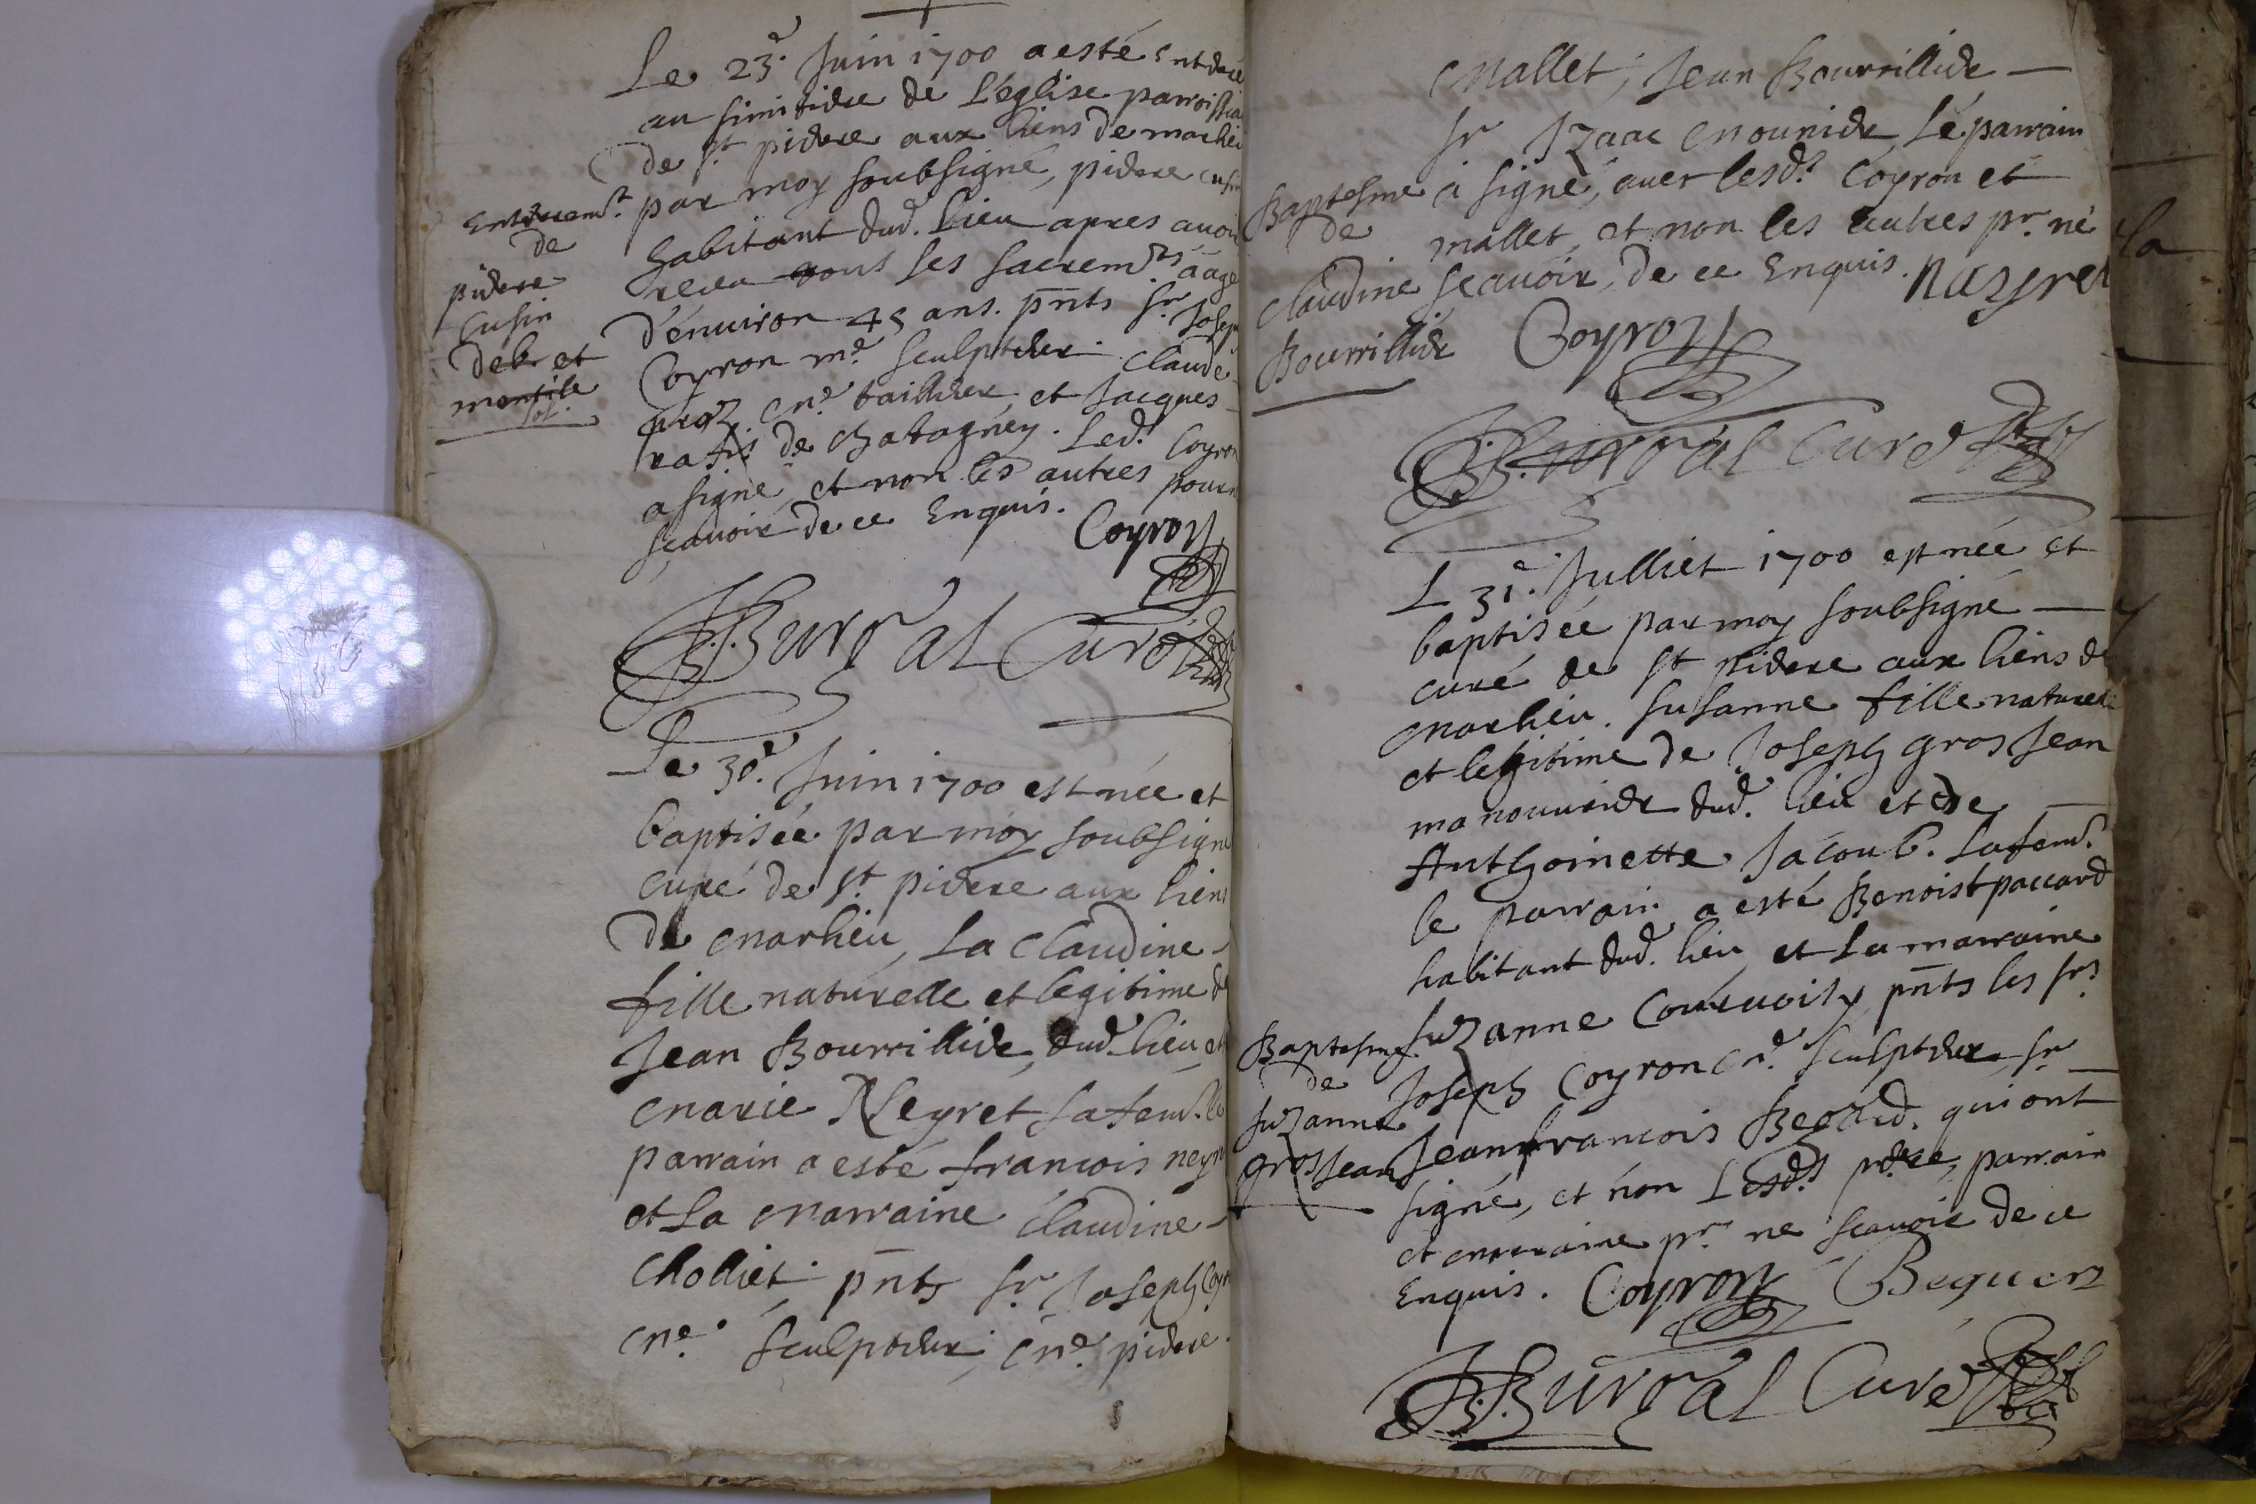 Le 23e. Juin 1700 a esté Enterré
au simitiere de L'eglise parroissia
de st pierre aux liens de marlieu
par moy soubsigné, pierre cusin
habitant dud. lieu apres avoir
receu tous ses sacremts. aagé
d'enuiron 45 ans. pnts sr Joseph
Coyron me sculpteur. Claude
me tailleur, et Jacques
de chatagney. Led. Coyron
a signé, et non les autres pour n
sçauoir de ce Enquis.
Coyron
Enterremt.
de
pierre
Cusin
debr et
mortile
sol.
J.Burgal Curé
Le 30e. Juin 1700 est née et
baptisée par moy soubsigné
curé de st pierre aux liens
de marlieu, La Claudine
fille naturelle et legitime de
Jean Bourrillier, dud. lieu et
marie Neyret sa fem. le
parrain a esté francois neyr
et La marraine Claudine
Cholliet. pnts sr Joseph Coyr
me. sculpteur, me. pierre
mallet, Jean Bourrillier
sr Izaac mounier, Le parrain
a signé, auec lesd. Coyron et
mallet, et non les autres pr. ne
sçauoir, de ce Enquis.
Baptesme
de
Claudine
Bourrillier
Coyron
J.Burgal Curé
L 31e. Julliet 1700 est née et
baptisée par moy soubsigné
curé de st pierre aux liens de
marlieu. susanne fille naturelle
et legitime de Joseph gros Jean
manouurier dud. lieu et de
Anthoinette Jacoub. sa fem.
le parrain a esté Benoist paccard
habitant dud. lieu, et La marraine
suzanne Couruoisy, pnts les srs
Joseph Coyron me. sculpteur, sr
Jean francois qui ont
signé, et non Lesds. pere, parrain
et marraine pr. ne scauoir de ce
Enquis. Coyron Beguen
Baptesme
de
suzanne
gros Jean
J.Burgal Curé